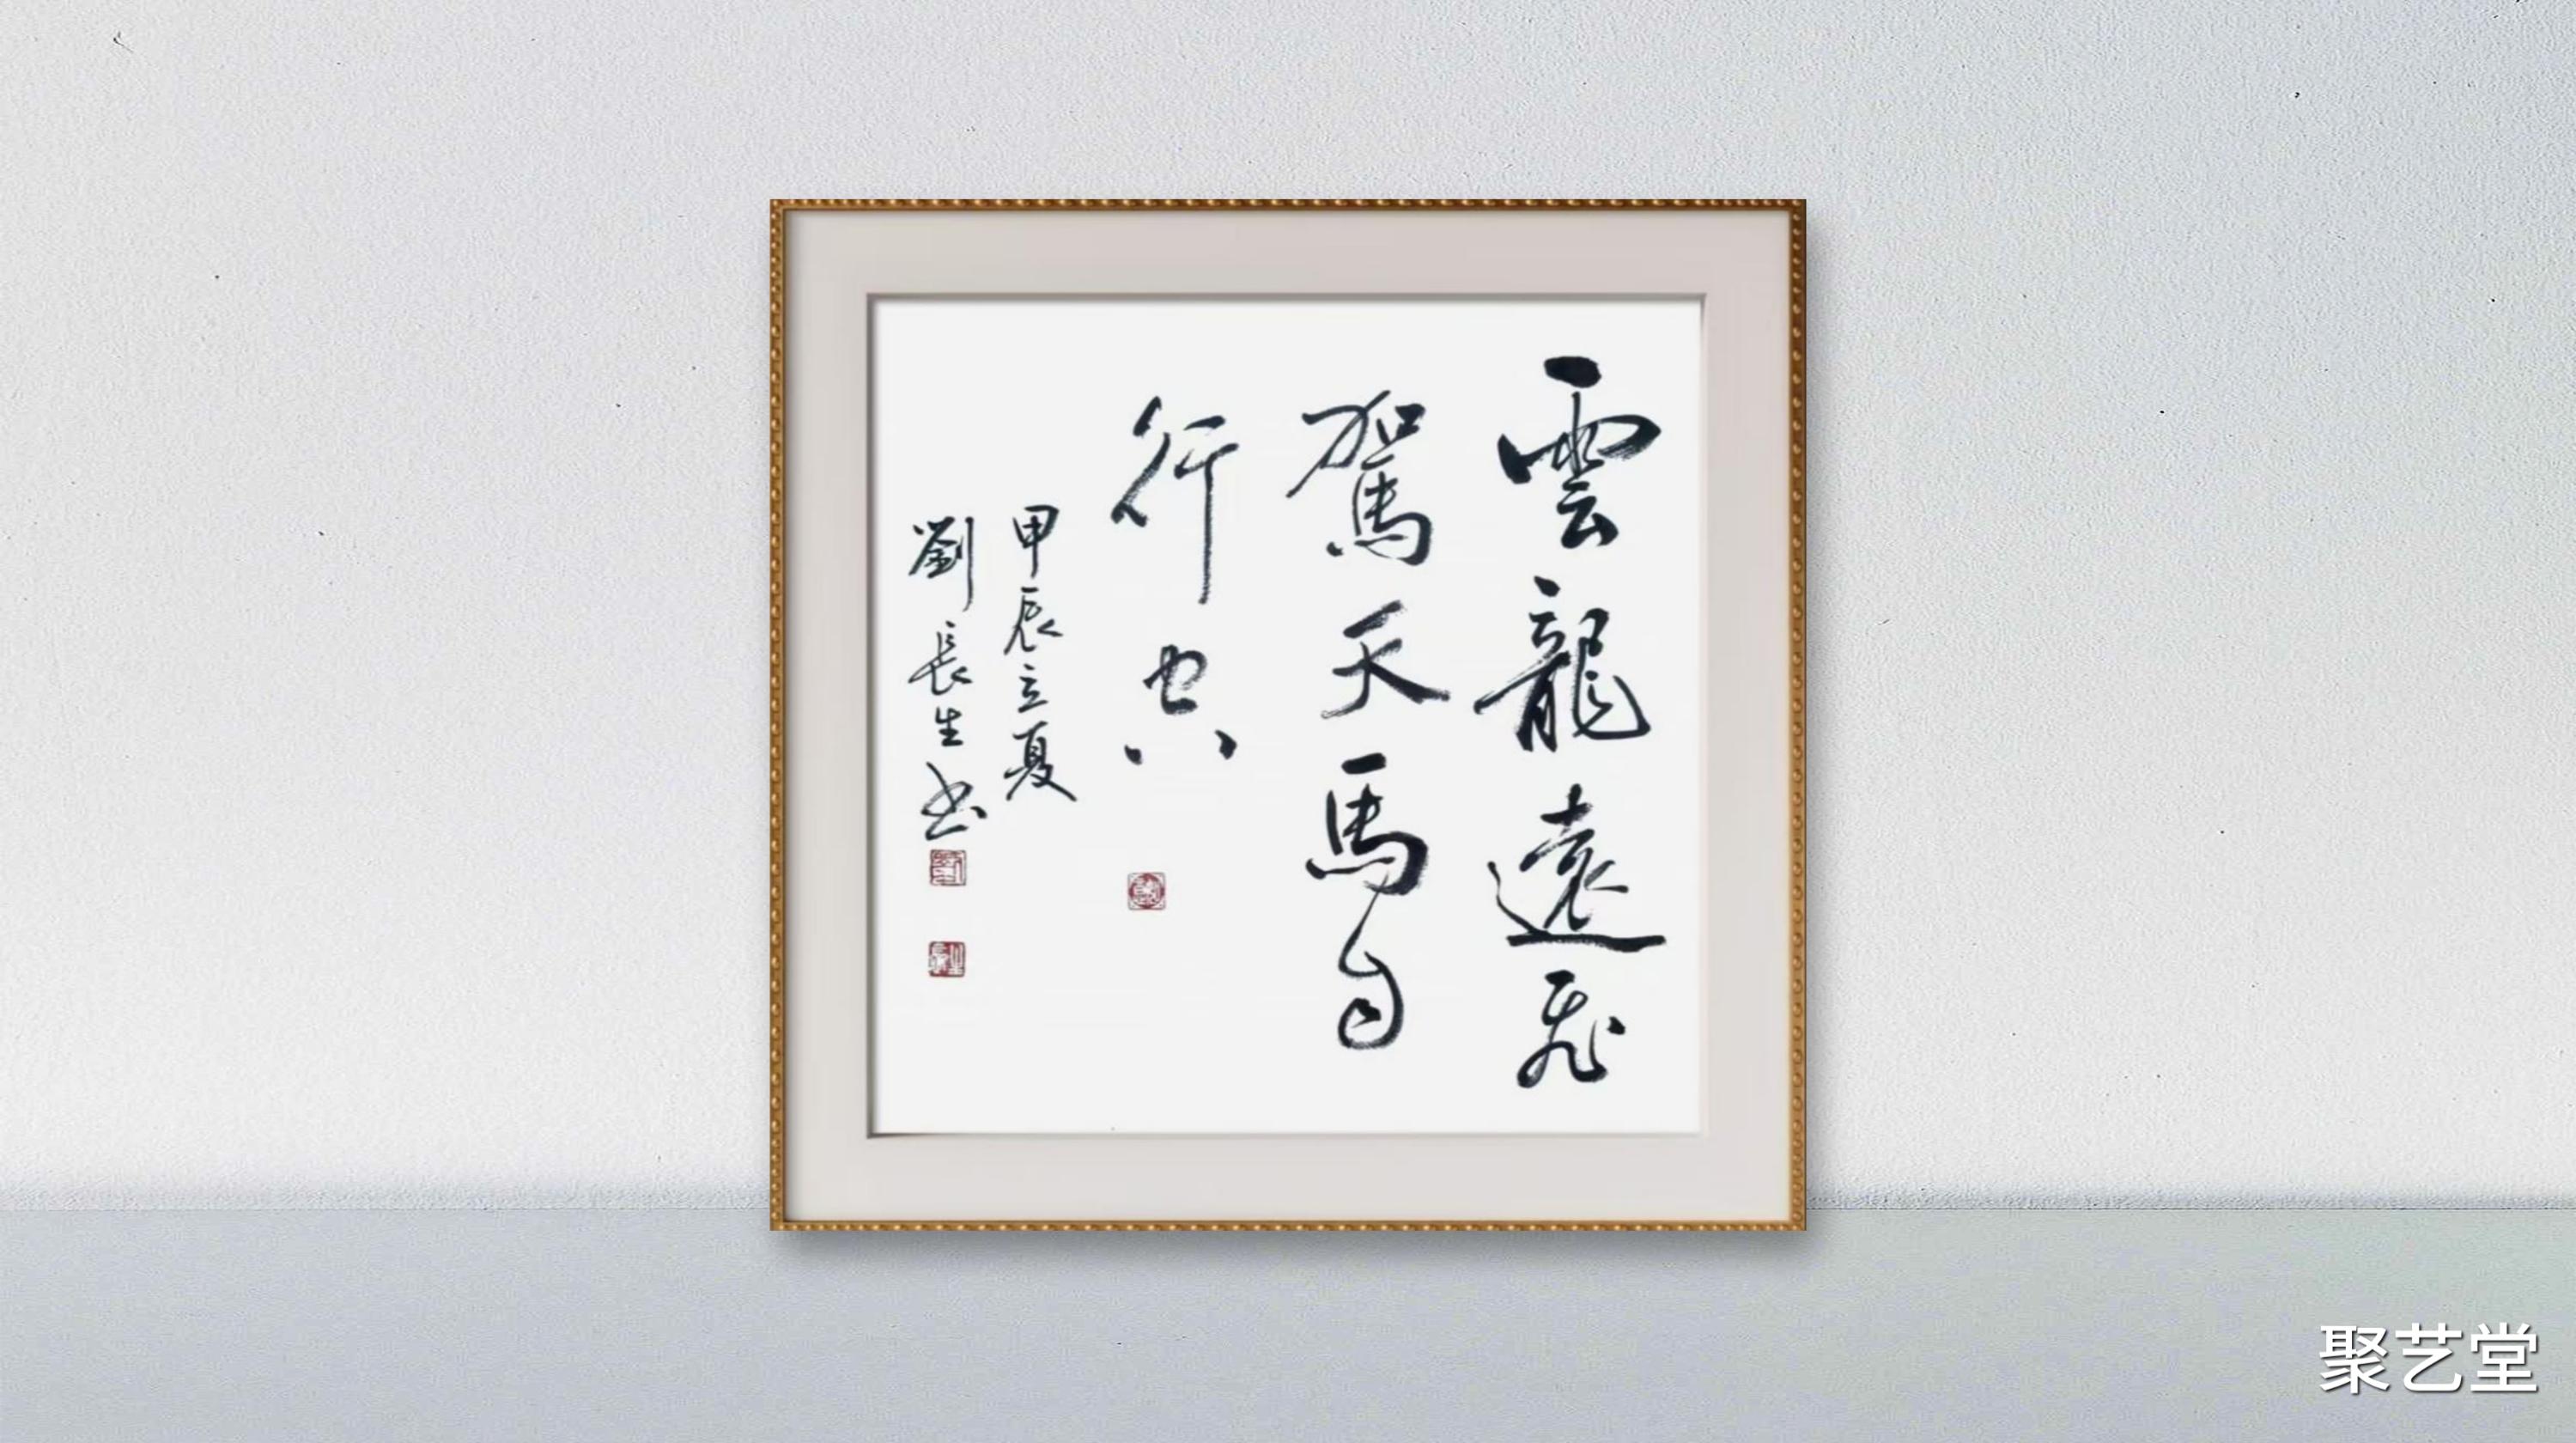 雲龍遠飛
駕天馬自
行空
甲辰立夏
劉長生书
聚艺堂